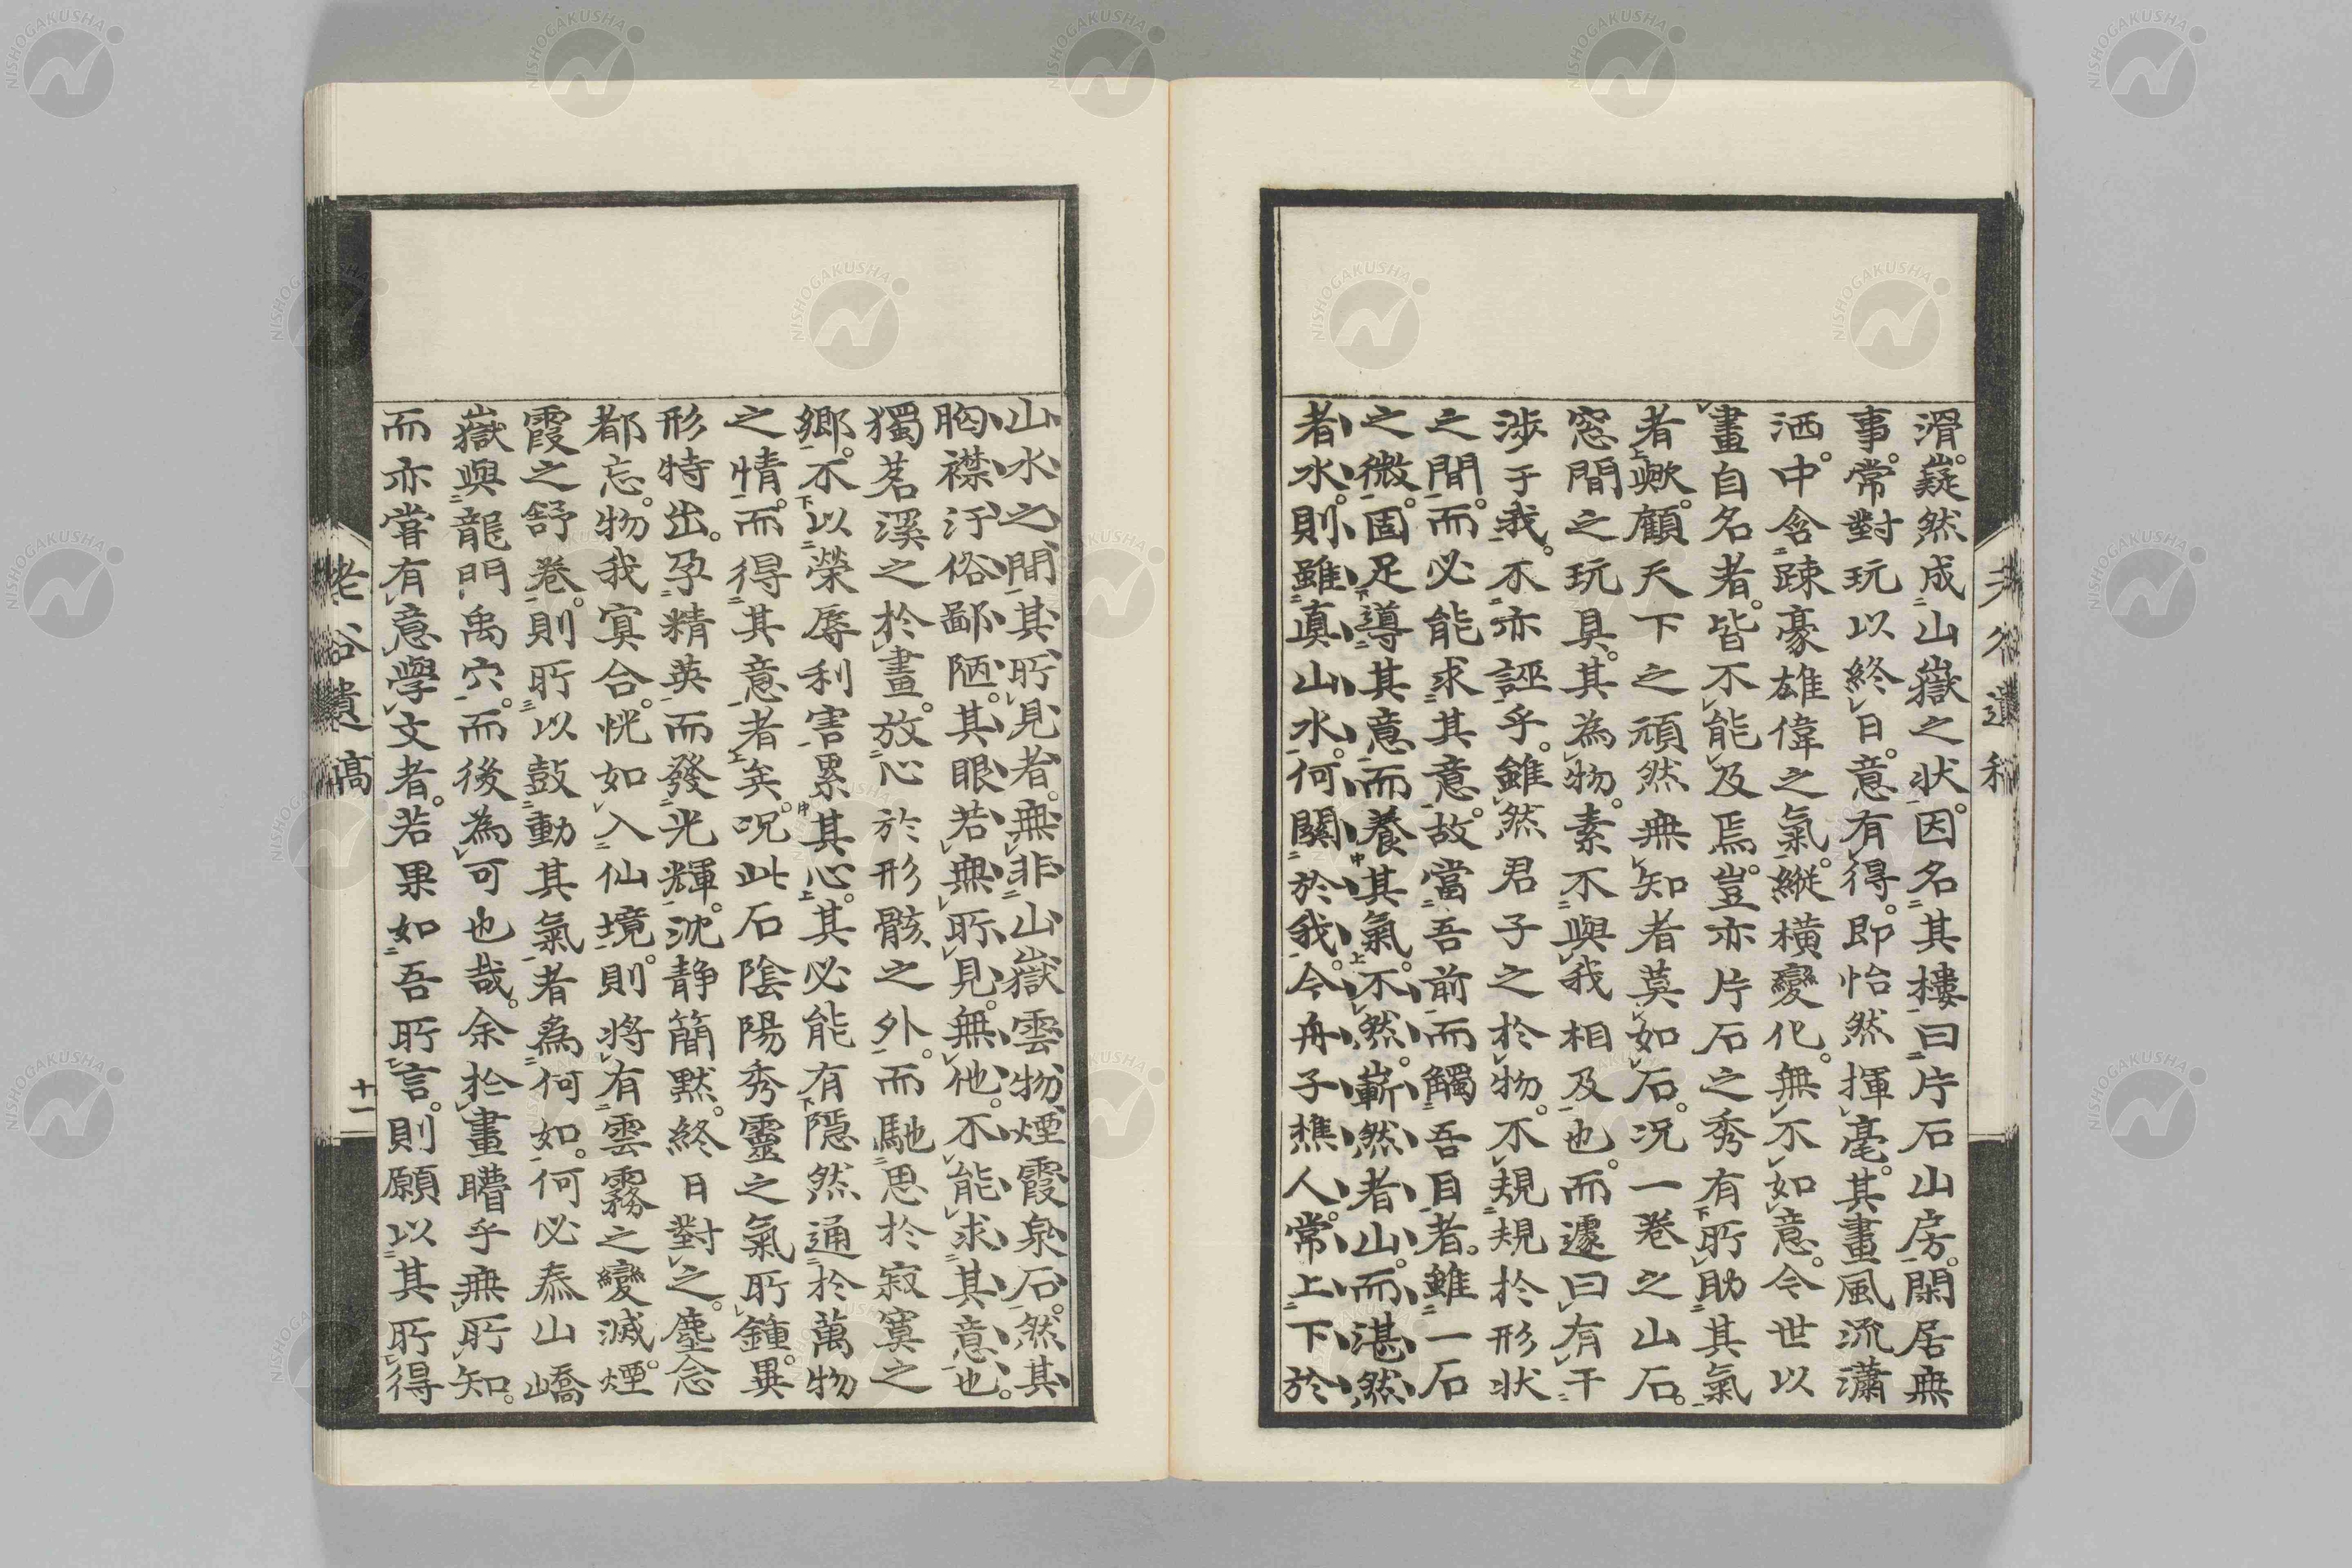 滑。嶷然成山嶽之状。因名其樓曰片石山房。閑居無
事。常對玩以終日。意有得。即怡然揮毫。其畫風流瀟
洒。中含踈豪雄偉之氣。縱橫變化。無不如意。今世以
畫自名者。皆不能及焉。豈亦片石之秀有所助其氣
者歟。顧天下之頑然無知者莫如石。况一巻之山石。
窓間之玩具。其為物。素不與我相及也。而遽曰有干
渉于我。不亦誣乎。雖然君子之於物。不規規於形状
之間。而必能求其意。故當吾前而觸吾目者。雖一石
之微。固足導其意而養其氣。不然。嶄然者山。而湛然
者水。則雖真山水。何關於我。今舟子樵人。常上下於
山水之間。其所見者。無非山嶽雲物煙霞泉石。然其
胸襟汙俗鄙陋。其眼若無所見。無他。不能求其意也。
獨茗溪之於畫。放心於形骸之外。而馳思於寂寞之
郷。不以榮辱利害累其心。其必能有隠然通於萬物
之情。而得其意者矣。况此石陰陽秀靈之氣所鍾。異
形特出。孕精英而發光輝。沈静簡黙。終日對之。塵念
都忘。物我冥合。恍如入仙境。則将有雲霧之變滅。煙
霞之舒巻。則所以鼓動其氣者為何如。何必泰山嶠
嶽與龍門禹穴。而後為可也哉。余於畫瞶乎無所知。
而亦甞有意學文者。若果如吾所言。則願以其所得
老谷遺稿
十一